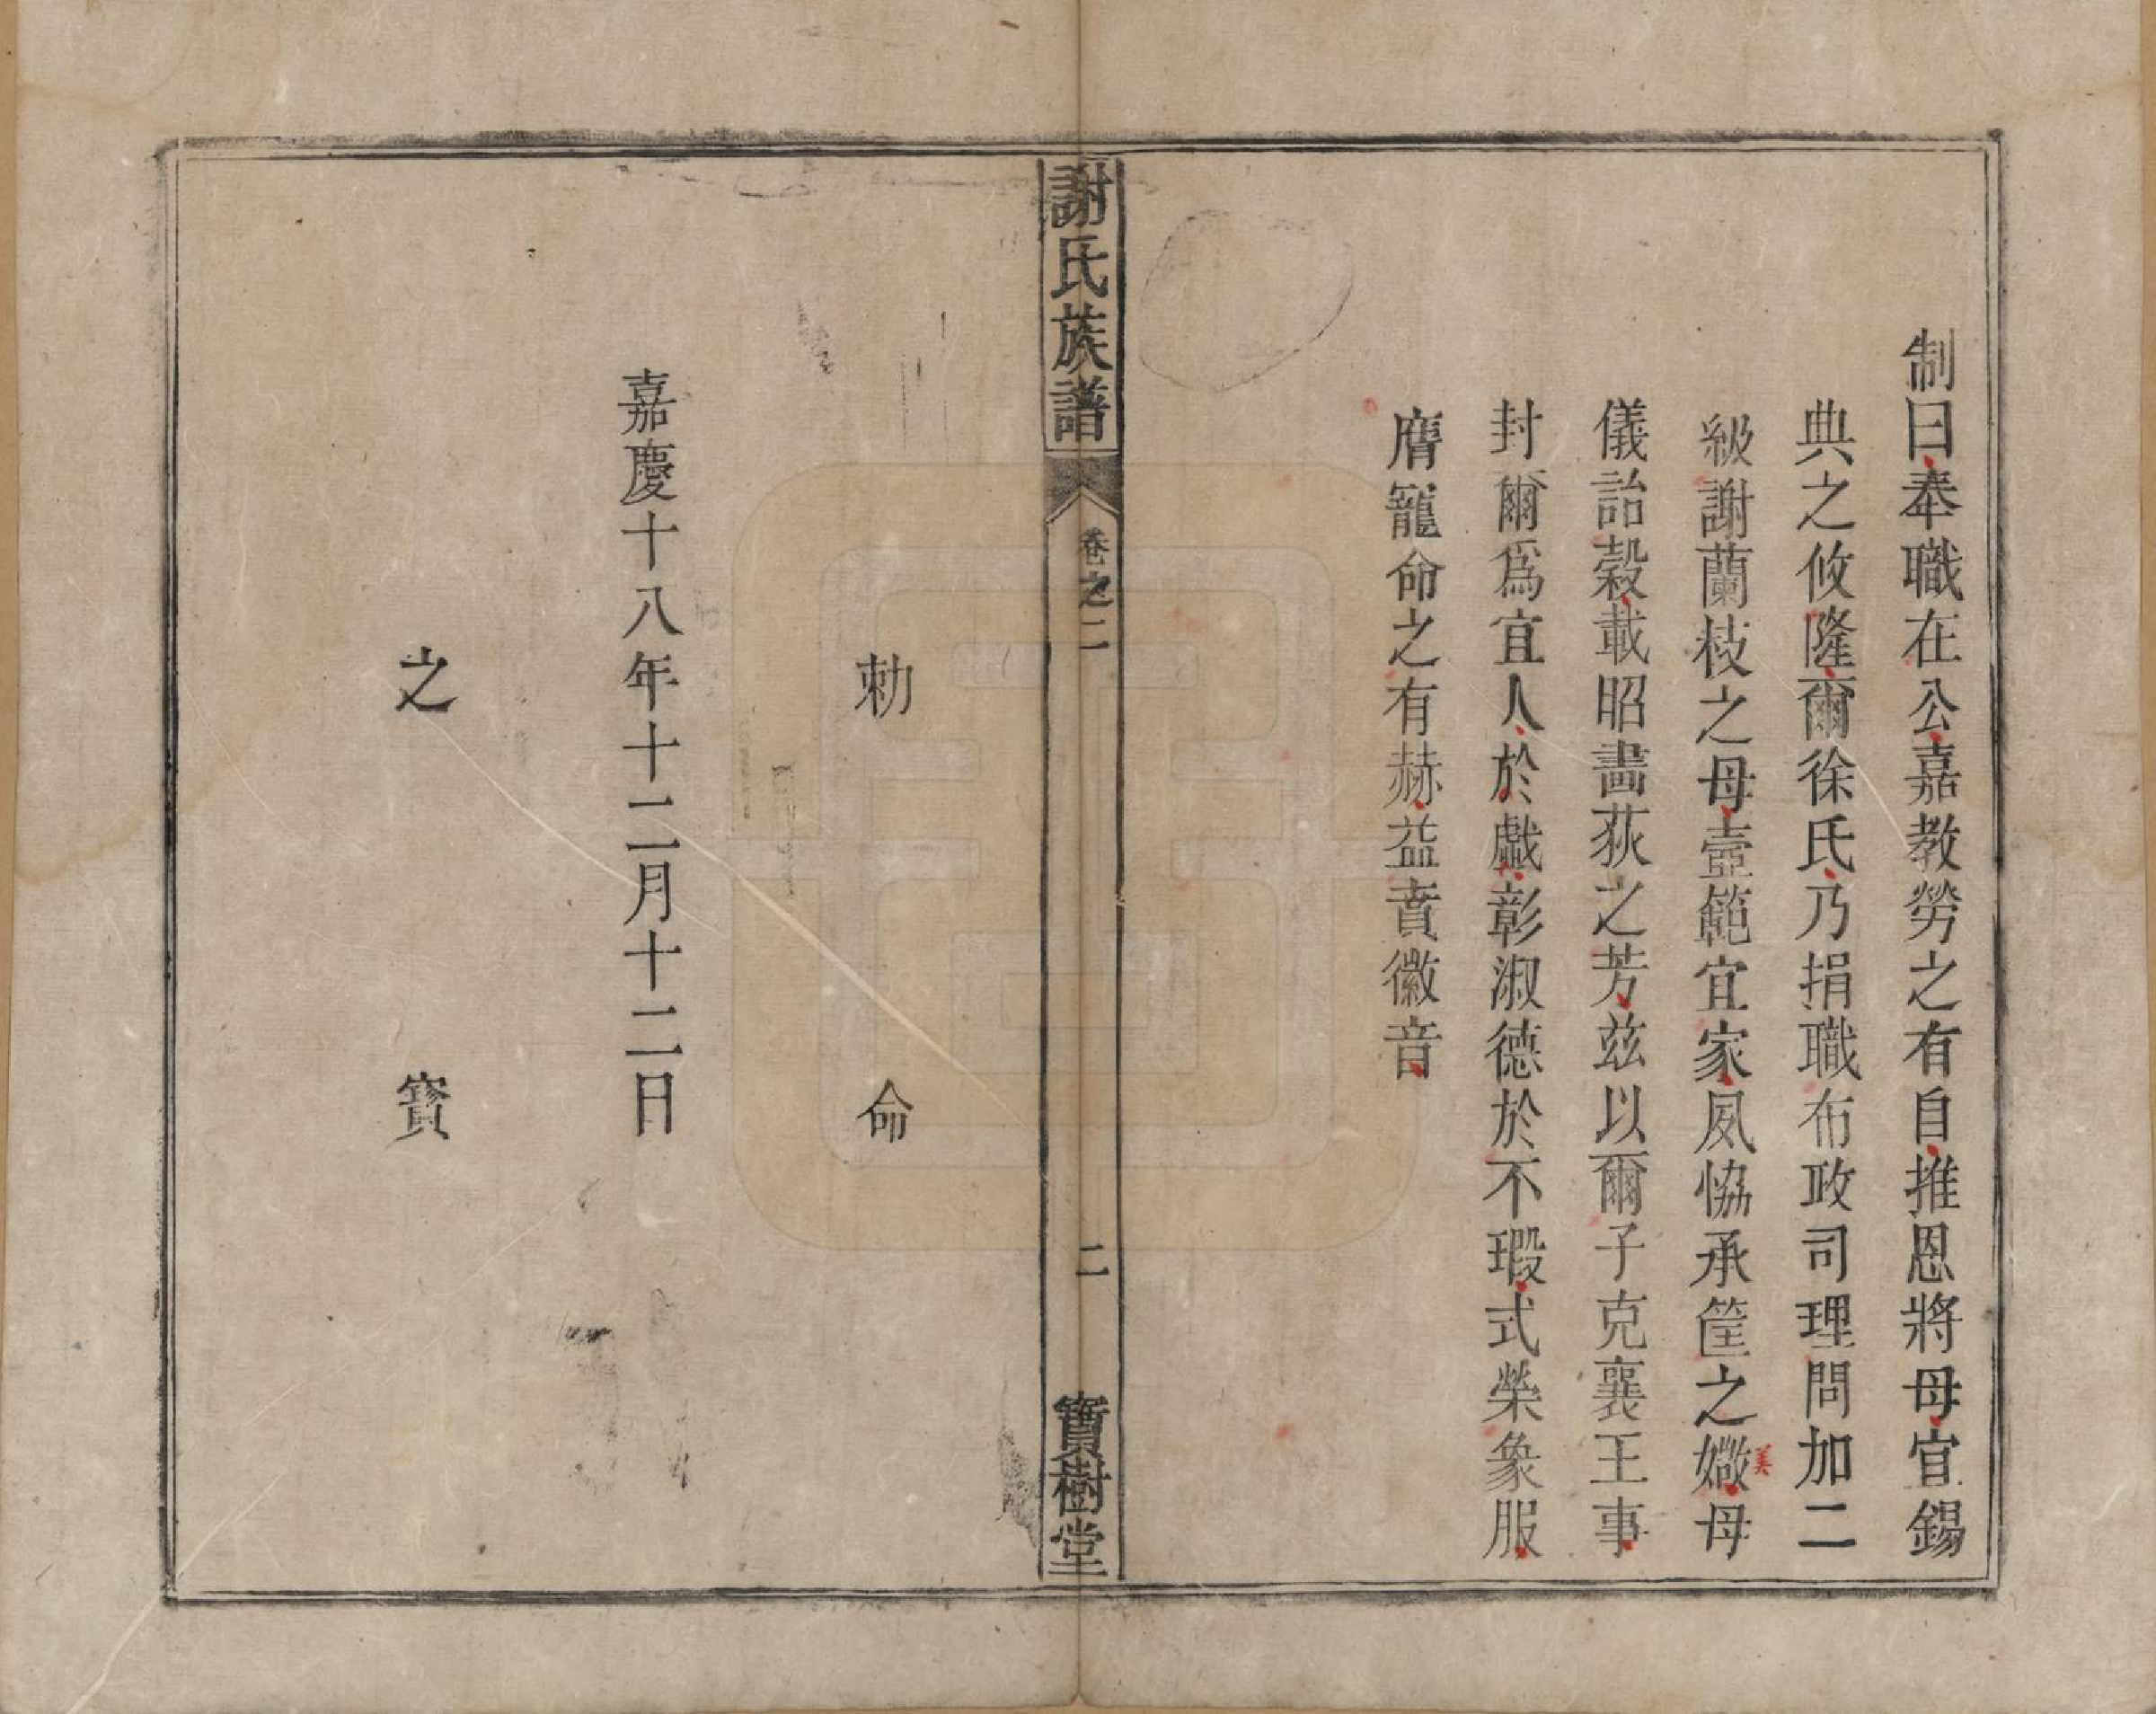 制曰奉職在公嘉教勞之有自推恩將母宜錫
典之攸隆爾徐氏乃捐職布政司理問加二
級謝蘭枝之母壼範宜家夙恊承筐之媺母
美
儀詒穀載昭畵荻之芳玆以爾子克襄王事
封爾爲宜人於戯彰淑德於不瑕式榮象服
膺寵命之有赫益賁徽音
謝氏族譜
卷之二
二
寶樹堂
勅命
嘉慶十八年十二月十二日
之寳